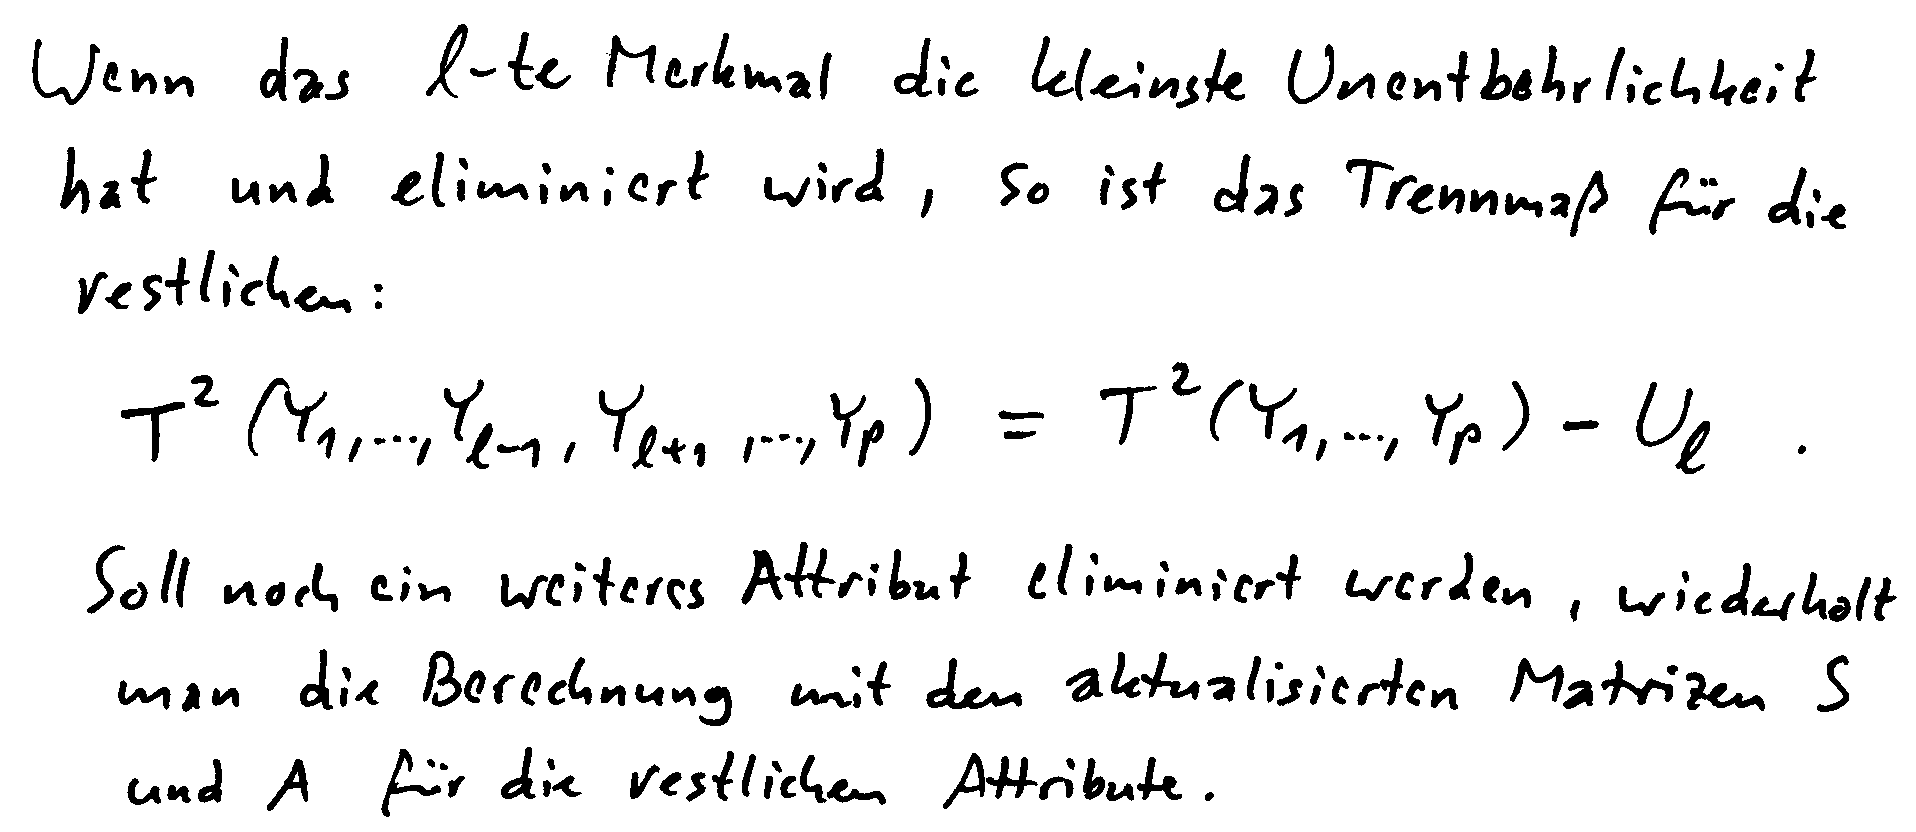 Wenn das l-te Merkmal die kleinste Unentbehrlichkeit
hat und eliminiert wird, so ist das Trennmaß für die
restlichen:
T² (Y₁,...,Yₗ₋₁, Yₗ₊₁,...,Yₚ) = T²(Y₁,...,Yₚ) - Uₗ .
Soll noch ein weiteres Attribut eliminiert werden, wiederholt
man die Berechnung mit den aktualisierten Matrizen S
und A für die restlichen Attribute.